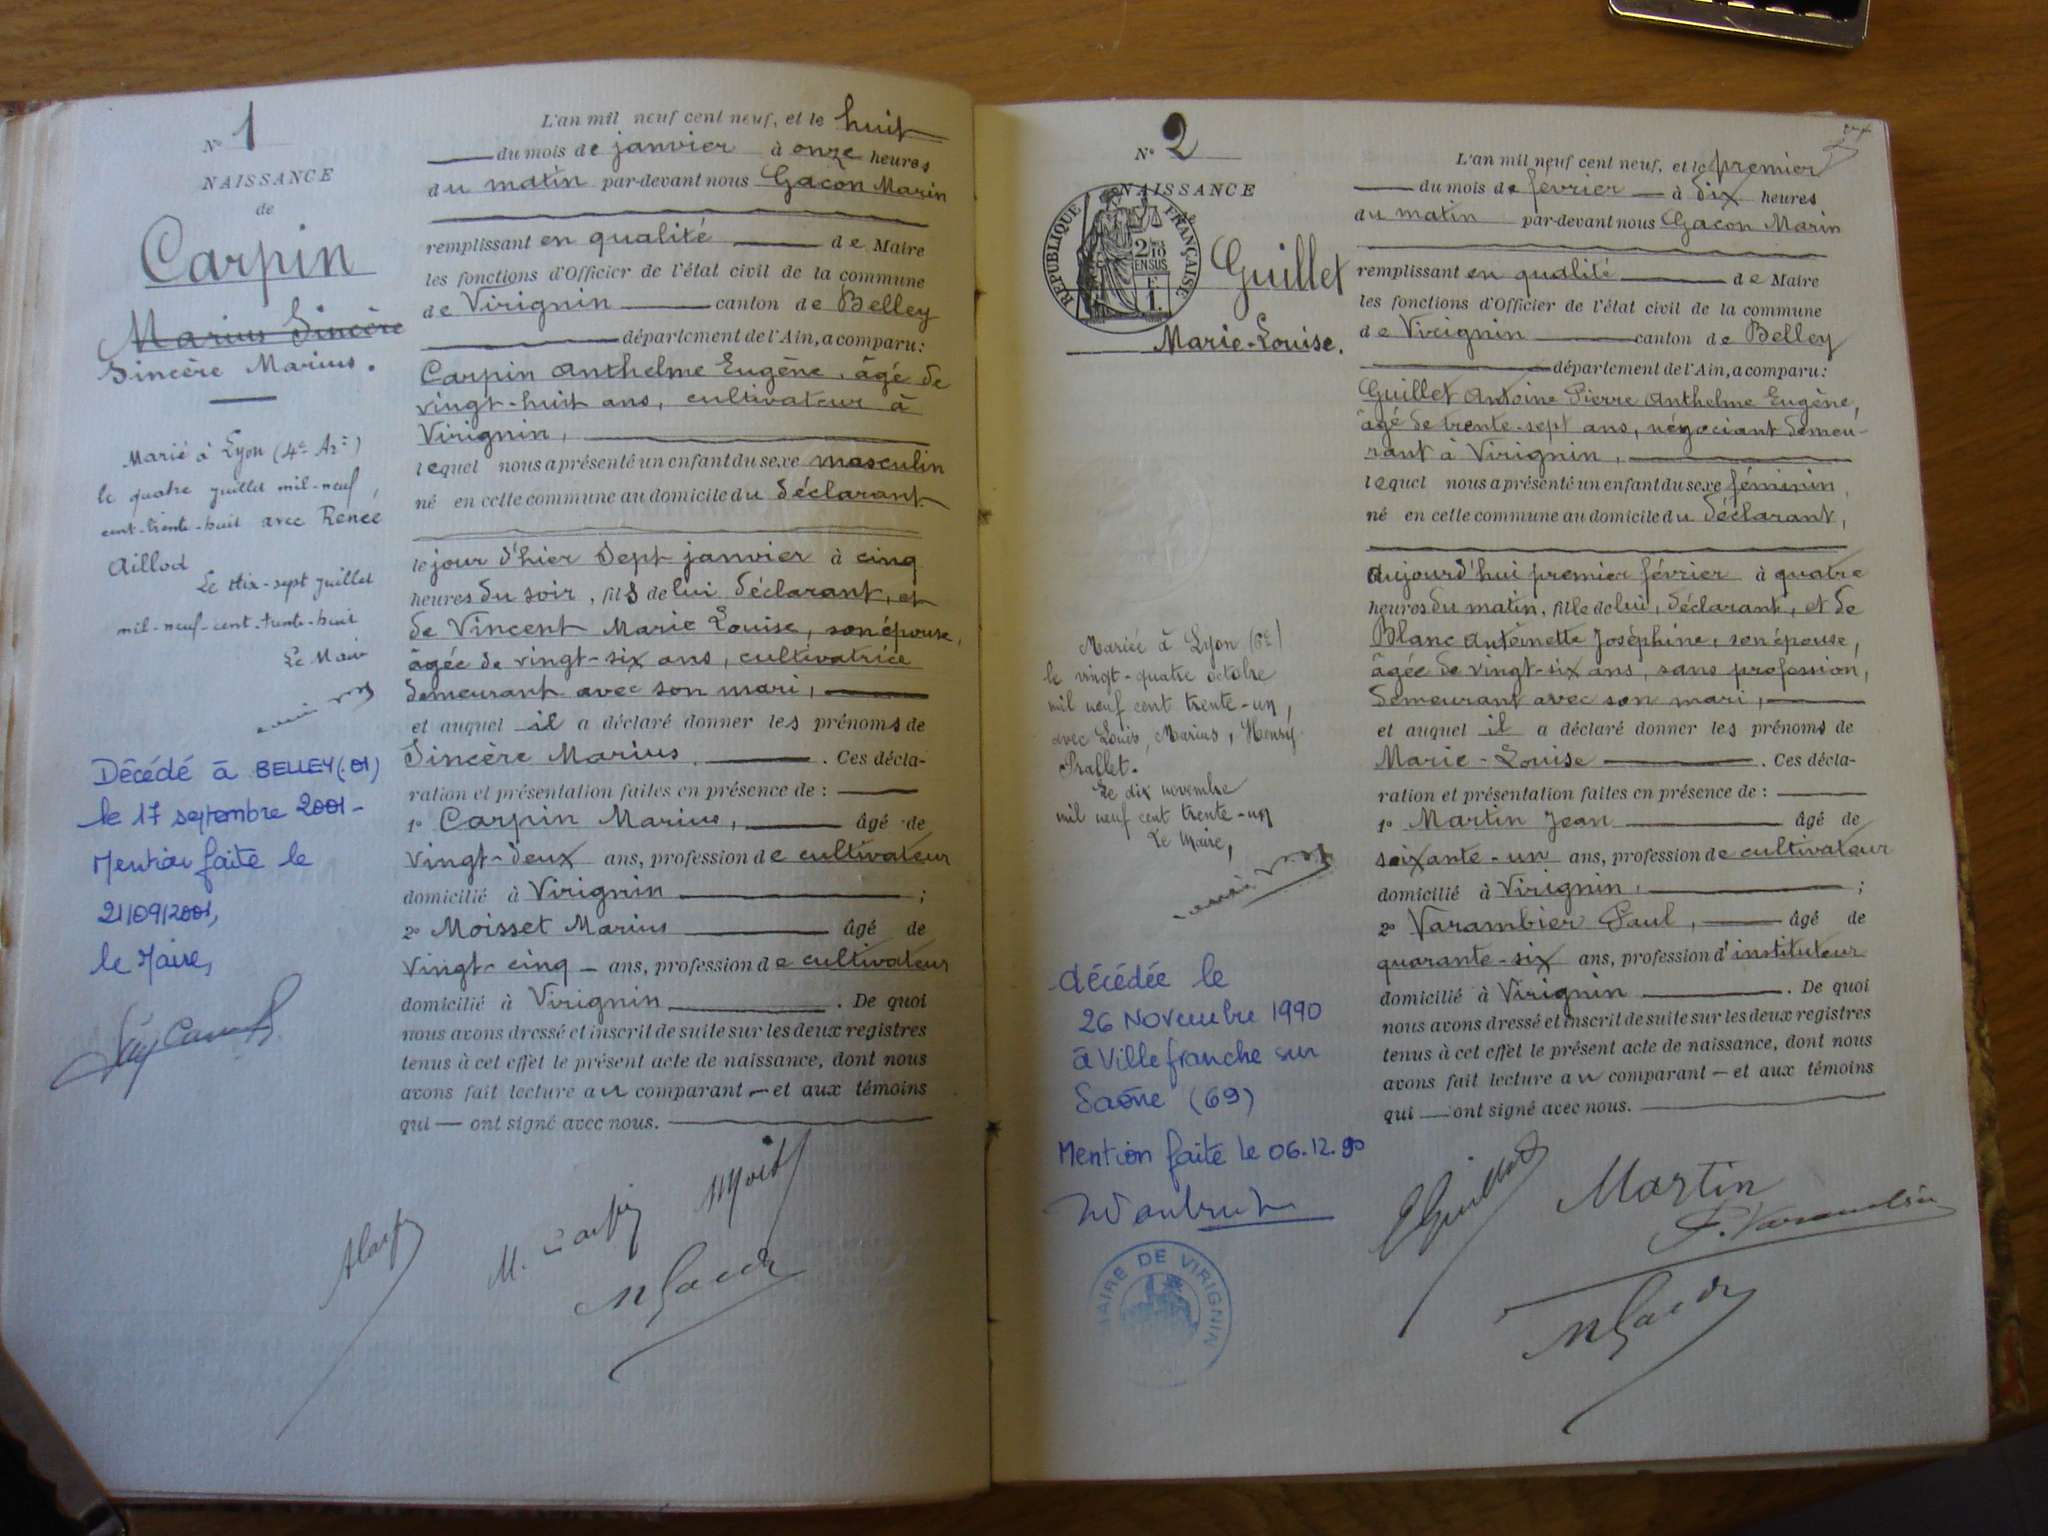 N° 1
NAISSANCE
de
Carpin
Marius Sincère
Sincère Marius.
Marié à Lyon (4e Art)
le quatre juillet mil-neuf
cent-trente-huit avec Renée
Aillod
Le dix-sept juillet
mil-neuf-cent-trente-huit
Le Maire
Décédé à BELLEY (01)
le 17 septembre 2001-
Mention faite le
21/09/2001,
le Maire,
L'an mil neuf cent neuf, et le huit
du mois de janvier à onze heures
du matin par-devant nous Gacon Marin
remplissant en qualité de Maire
les fonctions d'Officier de l'état civil de la commune
de Virignin canton de Belley
département de l'Ain, a comparu:
Carpin Anthelme Eugène, âgé de
vingt-huit ans, cultivateur à
Virignin,
lequel nous a présenté un enfant du sexe masculin
né en cette commune au domicile du déclarant
le jour d'hier sept janvier à cinq
heures du soir, fils de lui déclarant, et
de Vincent Marie Louise, son épouse,
âgée de vingt-six ans, cultivatrice
demeurant avec son mari,
et auquel il a déclaré donner les prénoms de
Sincère Marius. Ces décla-
ration et présentation faites en présence de :
1° Carpin Marius, âgé de
vingt-deux ans, profession de cultivateur
domicilié à Virignin ;
2° Moisset Marius âgé de
vingt-cinq ans, profession de cultivateur
domicilié à Virignin. De quoi
nous avons dressé et inscrit de suite sur les deux registres
tenus à cet effet le présent acte de naissance, dont nous
avons fait lecture au comparant et aux témoins
qui ont signé avec nous.
M. Carpin
M Gacon
N° 2
NAISSANCE
RÉPUBLIQUE FRANÇAISE
2/10
EN SUS
F
1.
Guillet
Marie-Louise.
Mariée à Lyon (6e)
le vingt-quatre octobre
mil neuf cent trente-un,
avec Louis, Marius, Henry
Prallet.
Le dix novembre
mil neuf cent trente-un
Le Maire,
décédée le
26 Novembre 1990
à Villefranche sur
Saône (69)
Mention faite le 06.12.90
MAIRIE DE VIRIGNIN
L'an mil neuf cent neuf, et le premier
du mois de février à dix heures
du matin par-devant nous Gacon Marin
remplissant en qualité de Maire
les fonctions d'Officier de l'état civil de la commune
de Virignin canton de Belley
département de l'Ain, a comparu:
Guillet Antoine Pierre Anthelme Eugène,
âgé de trente-sept ans, négociant demeu-
rant à Virignin,
lequel nous a présenté un enfant du sexe féminin,
né en cette commune au domicile du déclarant,
aujourd'hui premier février à quatre
heures du matin, fille de lui, déclarant, et de
Blanc Antoinette Joséphine, son épouse,
âgée de vingt-six ans, sans profession,
demeurant avec son mari,
et auquel il a déclaré donner les prénoms de
Marie-Louise. Ces décla-
ration et présentation faites en présence de :
1° Martin Jean âgé de
soixante-un ans, profession de cultivateur
domicilié à Virignin, ;
2° Varambier Paul, âgé de
quarante-six ans, profession d'instituteur
domicilié à Virignin. De quoi
nous avons dressé et inscrit de suite sur les deux registres
tenus à cet effet le présent acte de naissance, dont nous
avons fait lecture au comparant et aux témoins
qui ont signé avec nous.
Guillet
Martin
P. Varambier
M Gacon